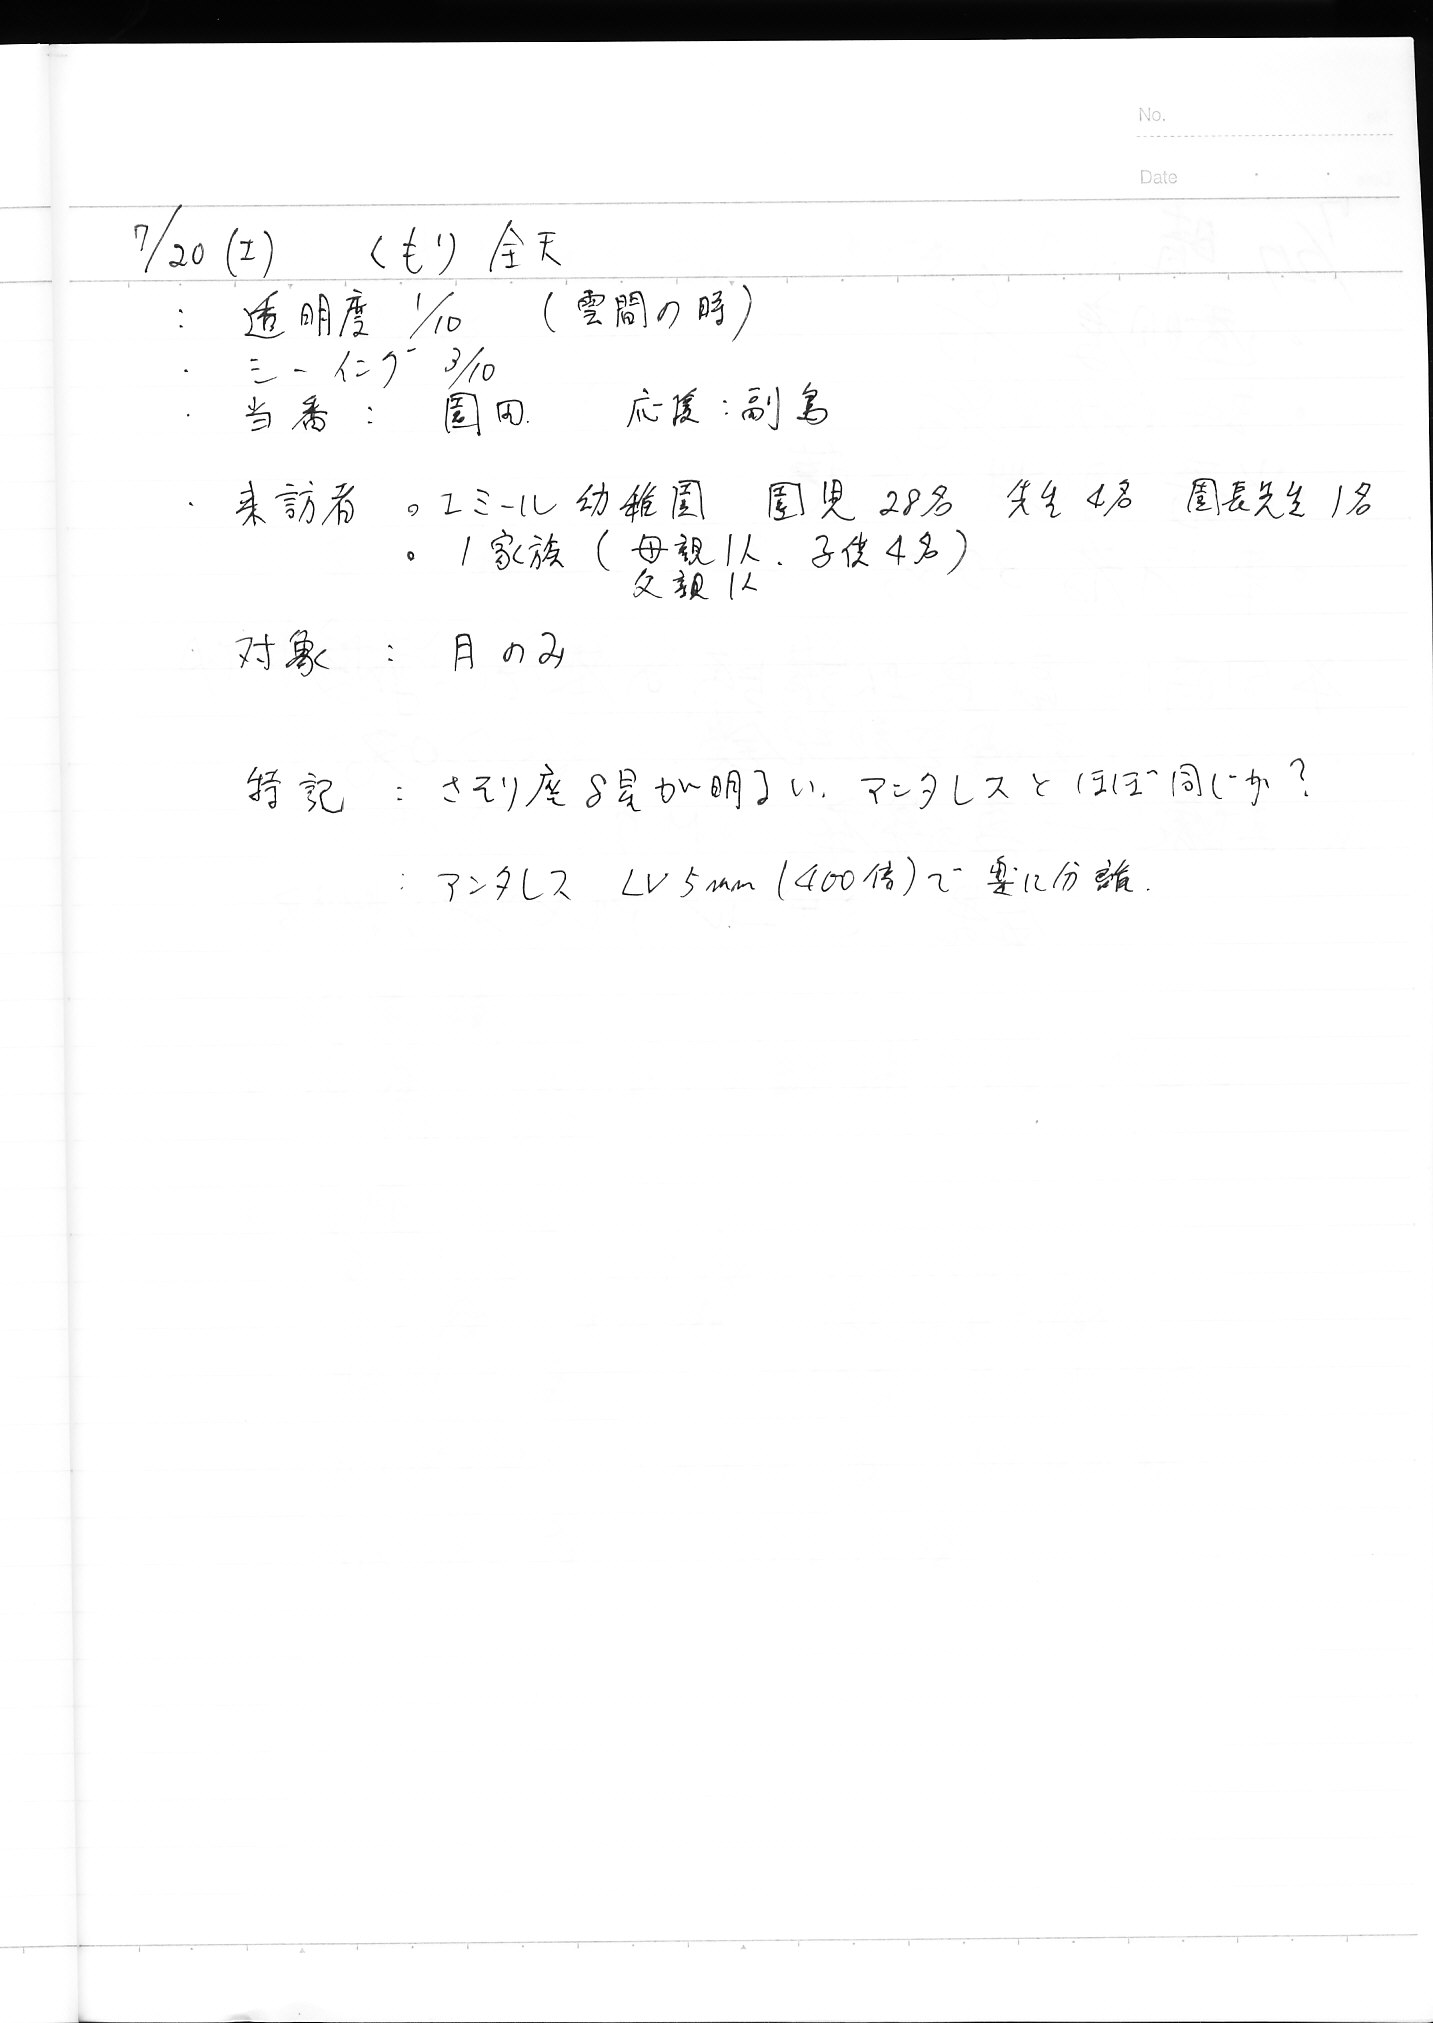 No.
Date
7/20(土) くもり 全天
: 透明度 1/10 (雲間の時)
・ シーイング 3/10
・ 当番: 園田. 応援:副島
・ 来訪者 。エミール幼稚園 園児28名 先生4名 園長先生1名
。1家族(母親1人、子供4名)
父親1人
・対象 : 月のみ
特記 : さそり座δ星が明るい. アンタレスとほぼ同じか?
: アンタレス LV5mm(400倍)で楽に分離.